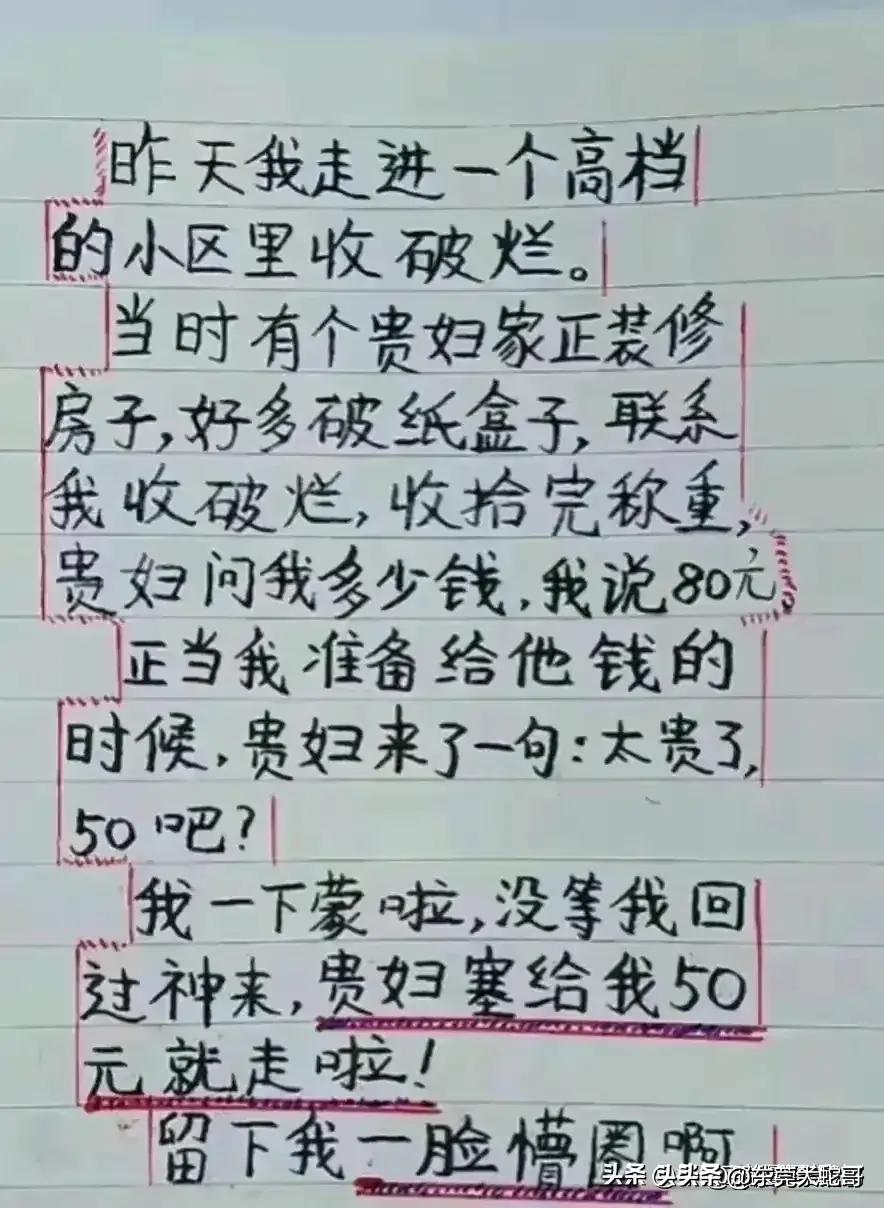 昨天我走进一个高档
的小区里收破烂。
当时有个贵妇家正装修
房子,好多破纸盒子,联系
我收破烂,收拾完称重,
贵妇问我多少钱,我说80元,
正当我准备给他钱的
时候,贵妇来了一句:太贵了,
50吧?
我一下蒙啦,没等我回
过神来,贵妇塞给我50
元就走啦!
留下我一脸懵圈啊
头条 @东莞大蛇哥